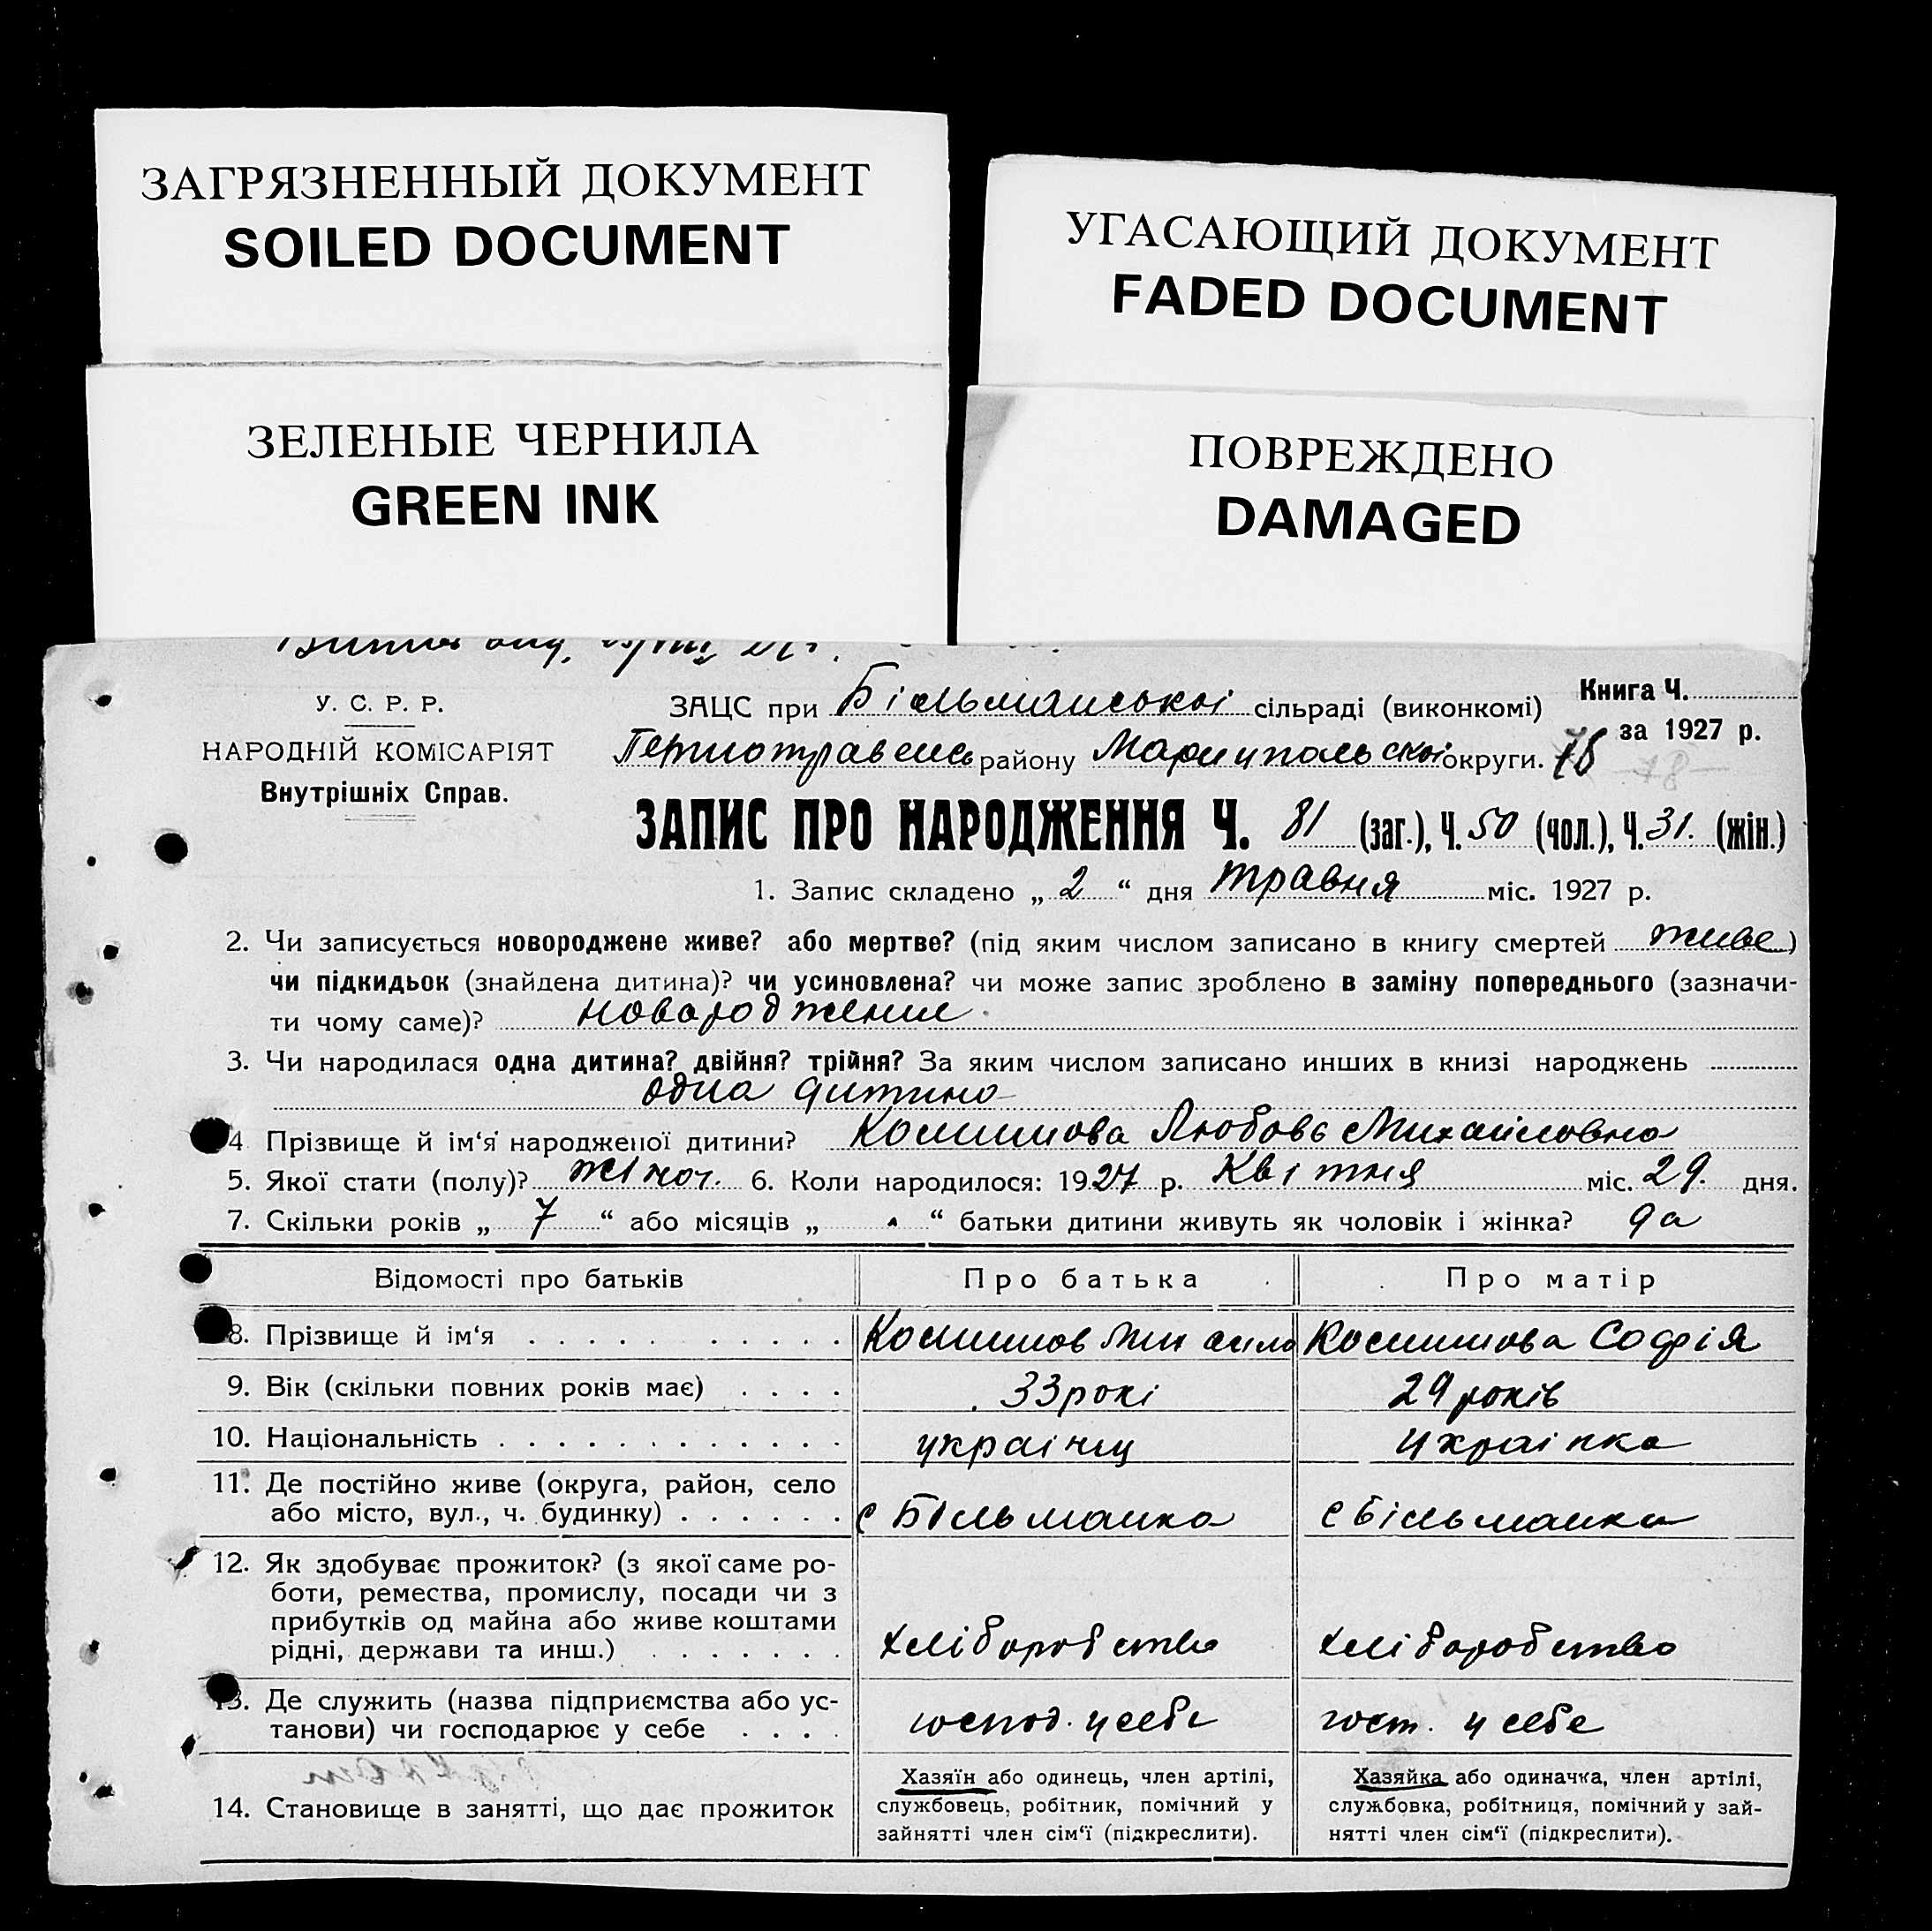 ЗАГРЯЗНЕННЫЙ ДОКУМЕНТ
SOILED DOCUMENT
УГАСАЮЩИЙ ДОКУМЕНТ
FADED DOCUMENT
ЗЕЛЕНЫЕ ЧЕРНИЛА
GREEN INK
ПОВРЕЖДЕНО
DAMAGED
У. С. Р. Р.
НАРОДНІЙ КОМІСАРІЯТ
Внутрішніх Справ.
ЗАЦС при Більманської сільраді (виконкомі)
Книга Ч.
за 1927 р.
району Мариупольскої округи. 78
ЗАПИС ПРО НАРОДЖЕННЯ Ч. 81 (заг.), Ч. 50 (чол.), Ч. 31. (жін.)
1. Запис складено „ 2 “ дня травня міс. 1927 р.
2. Чи записується новороджене живе? або мертве? (під яким числом записано в книгу смертей живе)
чи підкидьок (знайдена дитина)? чи усиновлена? чи може запис зроблено в заміну попереднього (зазначи-
ти чому саме)? новородженне
3. Чи народилася одна дитина? двійня? трійня? За яким числом записано инших в книзі народжень
одна дитина
4 Прізвище й ім‘я народженої дитини? Любовь Михайловна
5. Якої стати (полу)? жіноч. 6. Коли народилося: 1927 р. Квітня міс. 29. дня.
7. Скільки років „ 7 “ або місяців „ “ батьки дитини живуть як чоловік і жінка? да
Відомості про батьків
Про батька
Про матір
8. Прізвище й ім‘я
Михаило
Софія
9. Вік (скільки повних років має)
33 рокі
29 років
10. Національність
украінец
украінка
11. Де постійно живе (округа, район, село
або місто, вул., ч. будинку)
с Більманка
с Більманка
12. Як здобуває прожиток? (з якої саме ро-
боти, ремества, промислу, посади чи з
прибутків од майна або живе коштами
рідні, держави та инш.)
хліборобство
хліборобство
13. Де служить (назва підприємства або ус-
танови) чи господарює у себе
господ. у себе
госп. у себе
14. Становище в занятті, що дає прожиток
Хазяїн або одинець, член артілі,
службовець, робітник, помічний у
зайнятті член сім‘ї (підкреслити).
Хазяйка або одиначка, член артілі,
службовка, робітниця, помічний у зай-
нятті член сім‘ї (підкреслити).